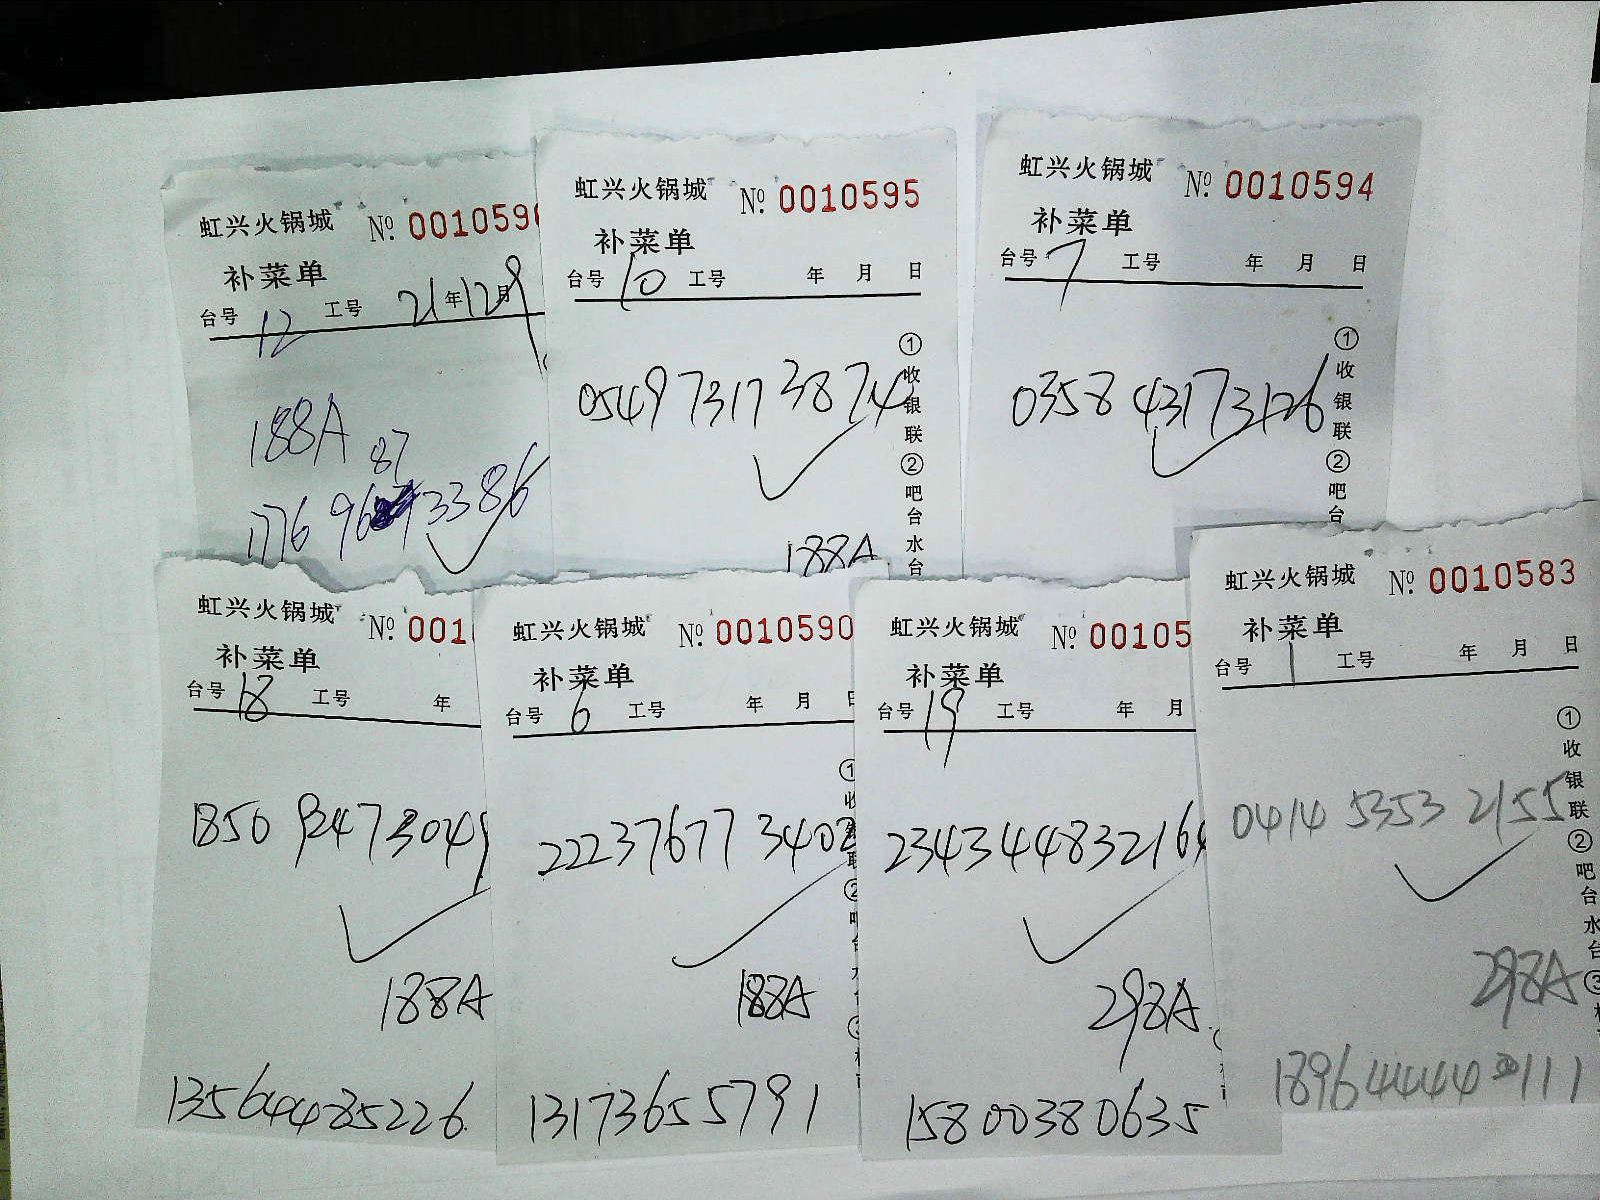 虹兴火锅城 №. 001059
补菜单
台号 12 工号 21年12月9
188A
87
1776 96 3386
虹兴火锅城 №. 0010595
补菜单
台号 10 工号 年 月 日
0549 7317 3874
188A
①收银联②吧台水台
虹兴火锅城 №. 0010594
补菜单
台号 7 工号 年 月 日
0358 4317 3126
①收银联②吧台
虹兴火锅城 №. 001
补菜单
台号 18 工号 年
1850 9247 3049
188A
13564485226
虹兴火锅城 №. 0010590
补菜单
台号 6 工号 年 月 日
2223 7677 3402
188A
13173655791
①收银联②吧台水
虹兴火锅城 №. 00105
补菜单
台号 19 工号 年 月
2343 4483 2164
298A
15800380635
虹兴火锅城 №. 0010583
补菜单
台号 1 工号 年 月 日
0414 5353 2155
298A
1896444 111
①收银联②吧台水台③